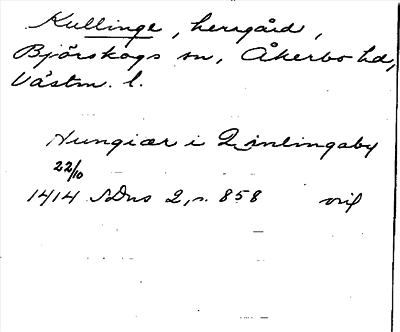 Kullinge, herrgård,
Björskogs sn, Åkerbo hd,
Västm. l.
Hungiær i Qinlingaby
22/10
1414 SDns 2, n. 858 orig